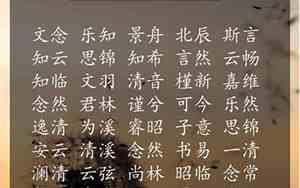 文念 乐知 景舟 北辰 斯言
知云 思锦 知希 言然 云畅
知临 文羽 清音 槿新 嘉维
念然 君林 谨兮 可今 乐然
逸清 为溪 睿昭 子意 思锦
安云 清溪 念然 书易 一清
澜清 云弦 尚林 昭临 念常